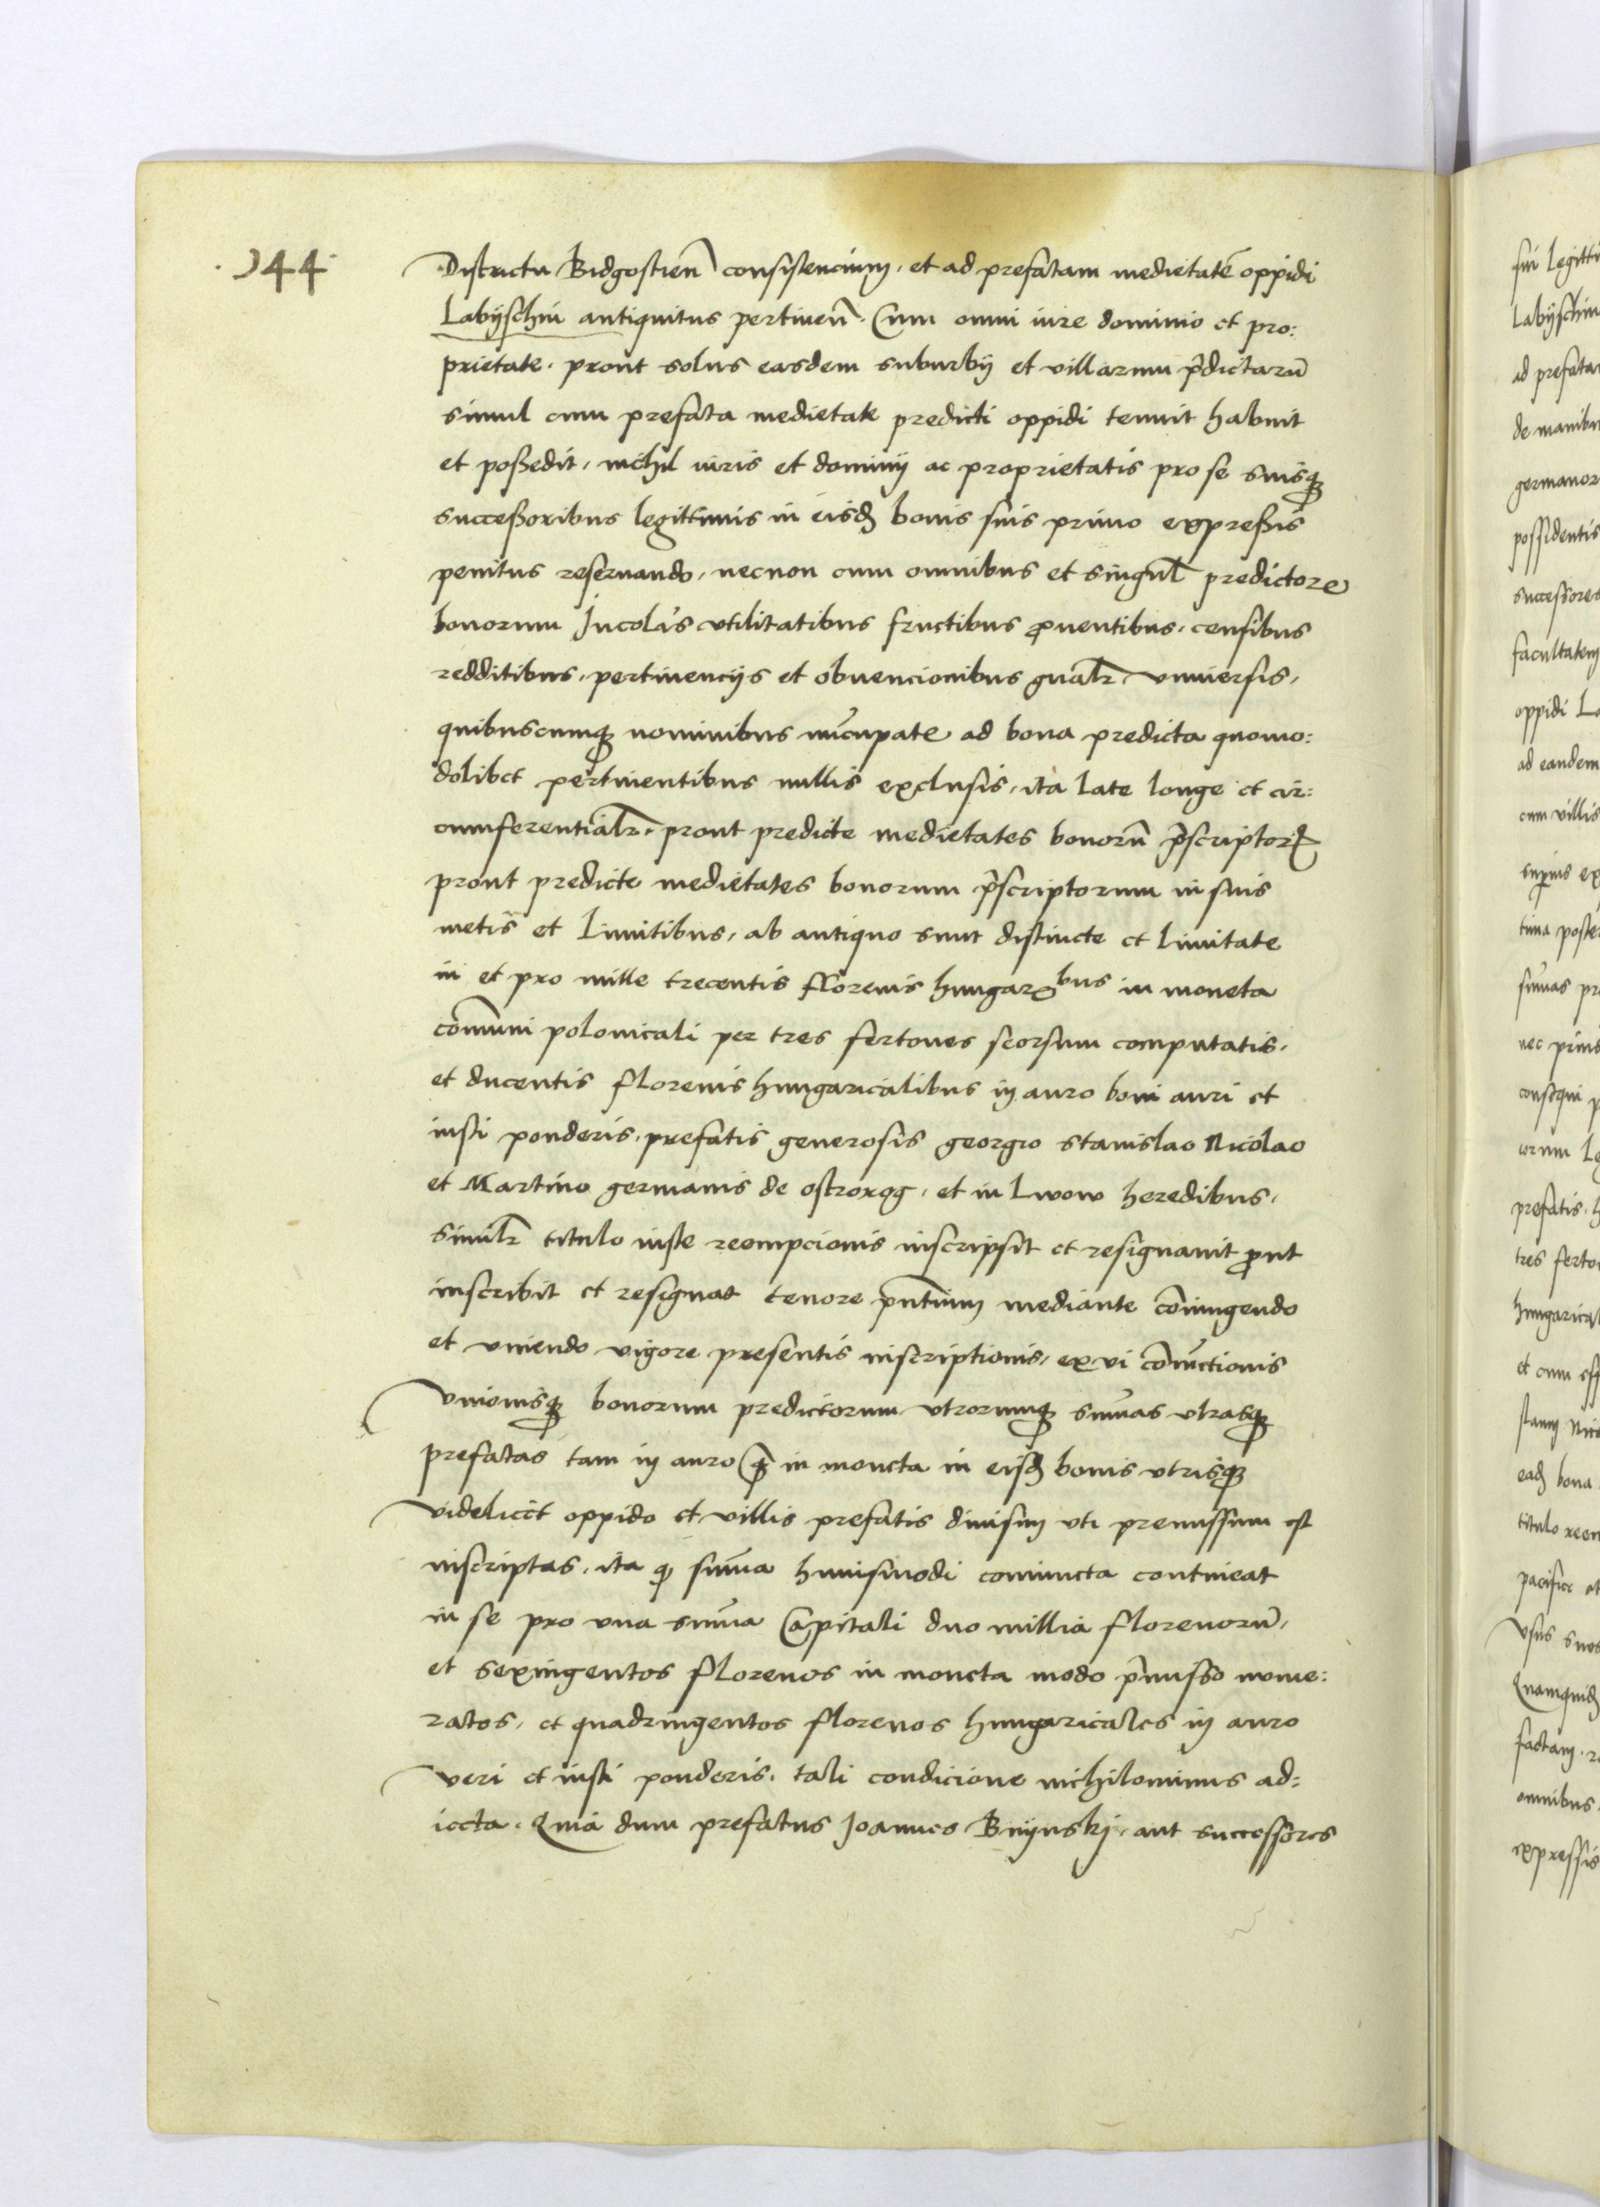 .144.
Districtu Bidgostien̄ consistencium, et ad prefatam medietatē oppidi
Labyschin antiquitus pertinen̄. Cum omni iure dominio et pro:
prietate. prout solus easdem suburbÿ et villarum p̄dictarū
simul cum prefata medietate predicti oppidi tenuit habuit
et poßedit, nichil iuris et dominÿ ac proprietatis pro se suisqꝫ
successoribus legittimis in eisđ bonis suis primo expreßis
penitus reseruando, necnon cum omnibus et singul̄ predictorꝫ
bonorum Incolis vtilitatibus fructibus ꝓuentibus. censibus
redditibus. pertinencÿs et obuencionibus gnalr̄. vniuersis,
quibuscumqꝫ nominibus nūcupatꝭ ad bona predicta quomo:
dolibet pertinentibus nullis exclusis, ita late longe et cir:
cumferentialr̄. prout predicte medietates bonorū p̄scriptorꝝ
prout predicte medietates bonorum p̄scriptorum in suis
metis et Limitibus, ab antiquo sunt distincte et limitate
in et pro mille trecentis florenis hungar.bus in moneta
cōmuni polonicali per tres fertones seorsum computatis.
et ducentis florenis hungaricalibus in auro boni auri et
iusti ponderis. prefatis generosis georgio stanislao Nicolao
et Martino germanis de ostrorog. et in Lwow heredibus,
similr̄ titulo iuste reempcionis inscripsit et resignauit ꝓut
inscribit et resignat tenore p̄ntium mediante cōiungendo
et vniendo vigore presentis inscriptionis, ex vi cōiūctionis
vnionisqꝫ bonorum predictorum vtrorumqꝫ sum̄as vtrasqꝫ
prefatas tam in auro q̄ꝫ in moneta in eisđ bonis vtrisqꝫ
videlicet oppido et villis prefatis diuisim vti premissum est
inscriptas, ita ꝙ sum̄a huiusmodi coniuncta contineat
in se pro vna sum̄a Capitali duo millia florenorū,
et sexingentos florenos in moneta modo p̄misso nume:
ratos, et quadringentos florenos hungaricales in auro
veri et iusti ponderis. tali condicione nichilominus ad:
iecta. Quia dum prefatus Joannes Bnÿnskj. aut successores